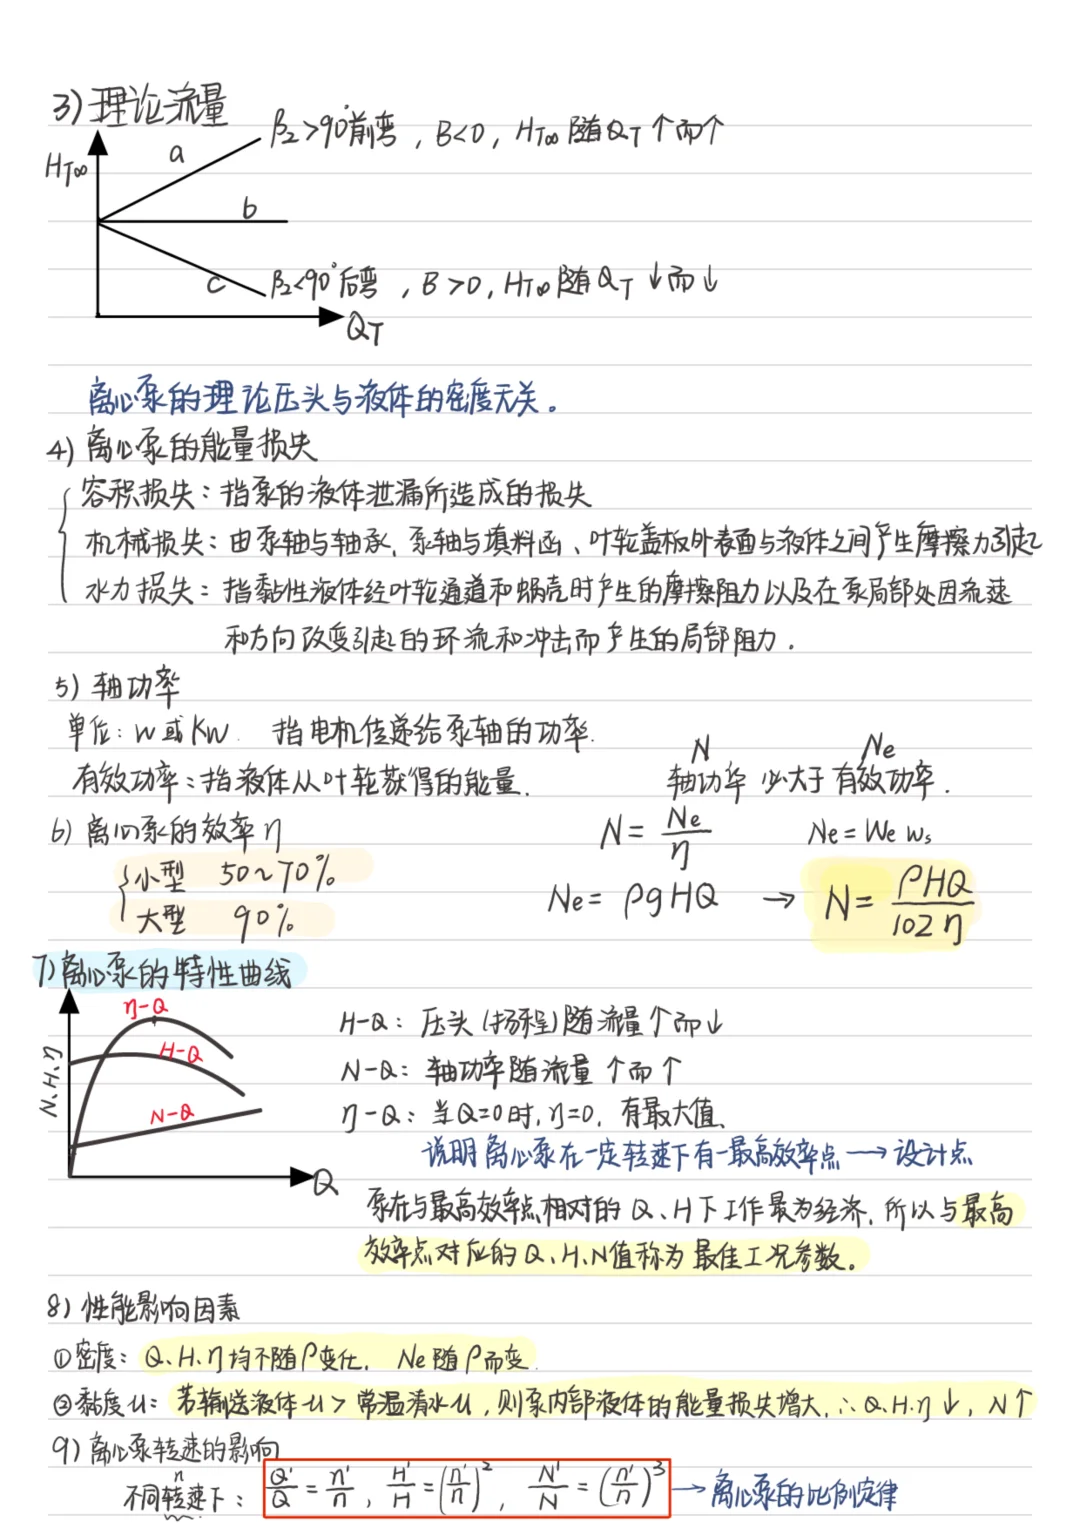 3) 理论流量
HT∞
a
β₂>90°前弯，B<0，HT∞随QT↑而↑
b
c
β₂<90°后弯，B>0，HT∞随QT↓而↓
QT
离心泵的理论压头与液体的密度无关。
4) 离心泵的能量损失
容积损失：指泵的液体泄漏所造成的损失
机械损失：由泵轴与轴承、泵轴与填料函、叶轮盖板外表面与液体之间产生摩擦力引起
水力损失：指黏性液体经叶轮通道和蜗壳时产生的摩擦阻力以及在泵局部处因流速
和方向改变引起的环流和冲击而产生的局部阻力.
5) 轴功率
单位：w或Kw. 指电机传递给泵轴的功率.
有效功率：指液体从叶轮获得的能量.
N Ne
轴功率必大于有效功率.
6) 离心泵的效率η
小型 50~70%
大型 90%
N=Ne/η Ne=We ws
Ne=ρgHQ → N=ρHQ/102η
7) 离心泵的特性曲线
η-Q
H-Q
N-Q
N、H、η
Q
H-Q：压头(扬程)随流量↑而↓
N-Q：轴功率随流量↑而↑
η-Q：当Q=0时，η=0，有最大值、
说明离心泵在一定转速下有一最高效率点→设计点
泵在与最高效率点相对的Q、H下工作最为经济，所以与最高
效率点对应的Q、H、N值称为最佳工况参数。
8) 性能影响因素
①密度：Q、H、η均不随ρ变化，Ne随ρ而变.
②黏度μ：若输送液体μ>常温清水μ，则泵内部液体的能量损失增大，∴Q、H、η↓，N↑
9) 离心泵转速的影响
n
不同转速下：Q'/Q=n'/n，H'/H=(n'/n)²，N'/N=(n'/n)³→离心泵的比例定律